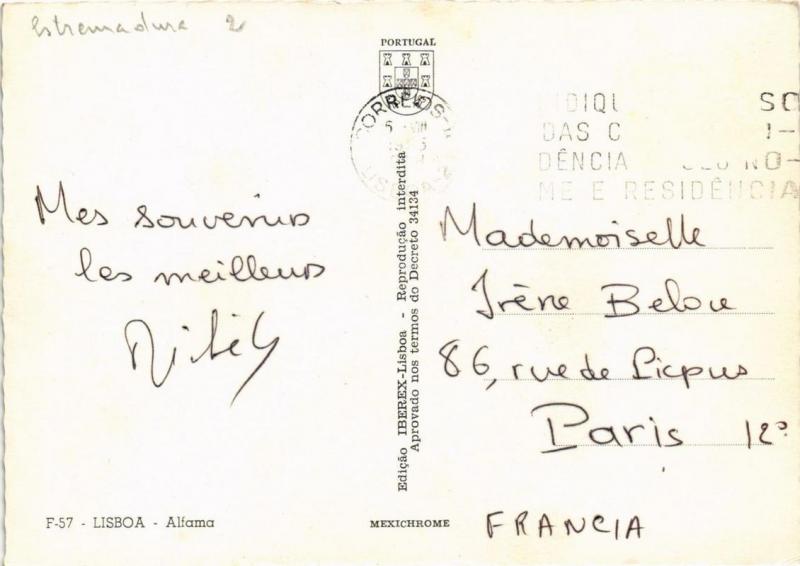 Estremadura 2
PORTUGAL
CORREIOS
5 VIII
DAS C
DÊNCIA NO-
ME E RESIDÊNCIA
Mes souvenirs
les meilleurs
Edição IBEREX-Lisboa - Reprodução interdita
Aprovado nos termos do Decreto 34134
Mademoiselle
Irène Belou
86, rue de Picpus
Paris 12e
FRANCIA
F-57 - LISBOA - Alfama
MEXICHROME